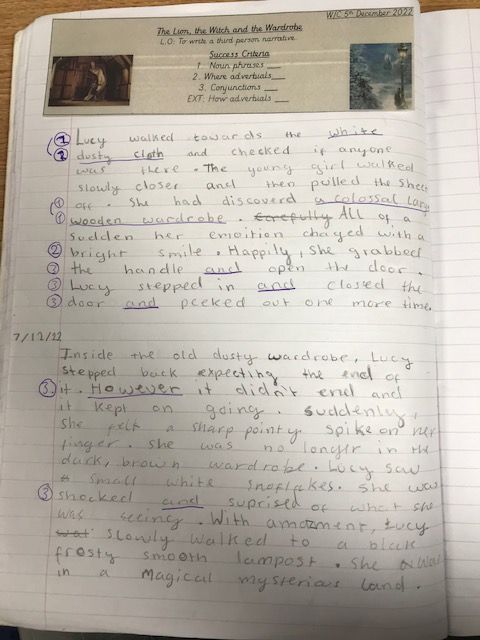 W/C 5th December 2022
The Lion, the Witch and the Wardrobe
L.O: To write a third person narrative.
Success Criteria
1. Noun phrases
2. Where adverbials
3. Conjunctions
EXT: How adverbials
1 Lucy walked towards the white
2 dusty cloth and checked if anyone
was there. The young girl walked
slowly closer and then pulled the sheet
1 off. She had discoverd a colossal
1 wooden wardrobe. Carefully All of a
sudden her emoition chaged with a
2 bright smile. Happily, she grabbed
2 the handle and open the door.
3 Lucy stepped in and closed the
3 door and peeked out one more time.
7/12/22
Inside the old dusty wardrobe, Lucy
stepped back expecting the end of
3. it. However it didn't end and
it kept on going. Suddenly,
she felt a sharp pointy spike on her
finger. She was no longer in the
dark, brown wardrobe. Lucy saw
small white snoflakes. She was
3 shocked and suprised of what she
was seeing. With amazment, Lucy
slowly walked to a black
frosty smooth lampost. She was
in a Magical mysterious land.